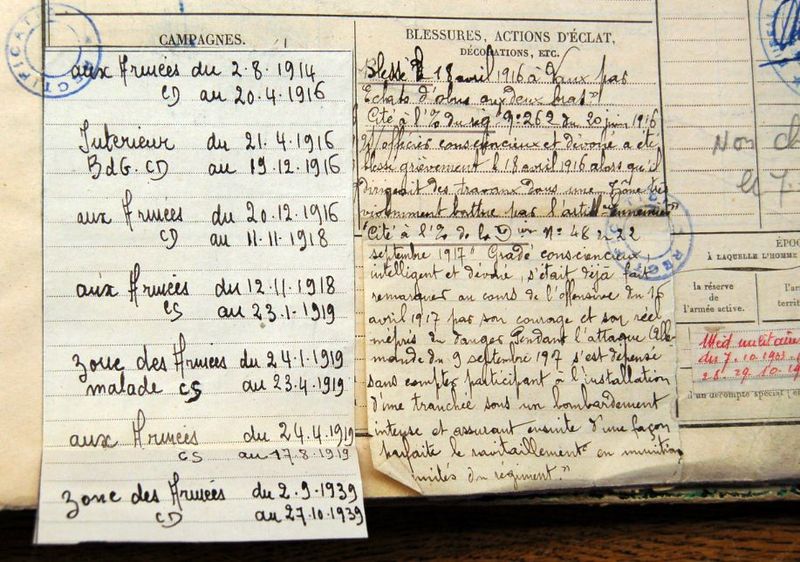 CAMPAGNES.
aux Armées du 2.8.1914
CD au 20.4.1916
Intérieur du 21.4.1916
BdG. CD au 19.12.1916
aux Armées du 20.12.1916
CD au 11.11.1918
aux Armées du 12.11.1918
CS au 23.1.1919
zone des Armées du 24.1.1919
malade CS au 23.4.1919
aux Armées du 24.4.1919
CS au 17.8.1919
zone des Armées du 2.9.1939
CD au 27.10.1939
BLESSURES, ACTIONS D'ÉCLAT,
DÉCORATIONS, ETC.
Blessé le 18 avril 1916 à Vaux par
Eclats d'obus aux deux bras"
Cité à l'O/ du rég. n° 262 du 20 juin 1916
S/officier consciencieux et dévoué a été
blessé grièvement le 18 avril 1916 alors qu'il
dirigeait des travaux dans une zône très
violemment battue par l'artie ennemie"
"Cité à l'O/ de la Don n° 48 du 22
septembre 1917" Gradé consciencieux
intelligent et dévoué, s'était déjà fait
remarquer au cours de l'offensive du 16
avril 1917 par son courage et son réel
mépris du danger. Pendant l'attaque Alle-
mande du 9 septembre 1917 s'est dépensé
sans compter participant à l'installation
d'une tranchée sous un bombardement
intense et assurant ensuite d'une façon
parfaite le ravitaillement en munition
unités du régiment."
Non
et 7
ÉPOQ
À LAQUELLE L'HOMME
la réserve
de
l'armée active.
l'arm
territ
militaire
du 7.10.
29.10.19
d'un décompte spécial
RECTIFICATI